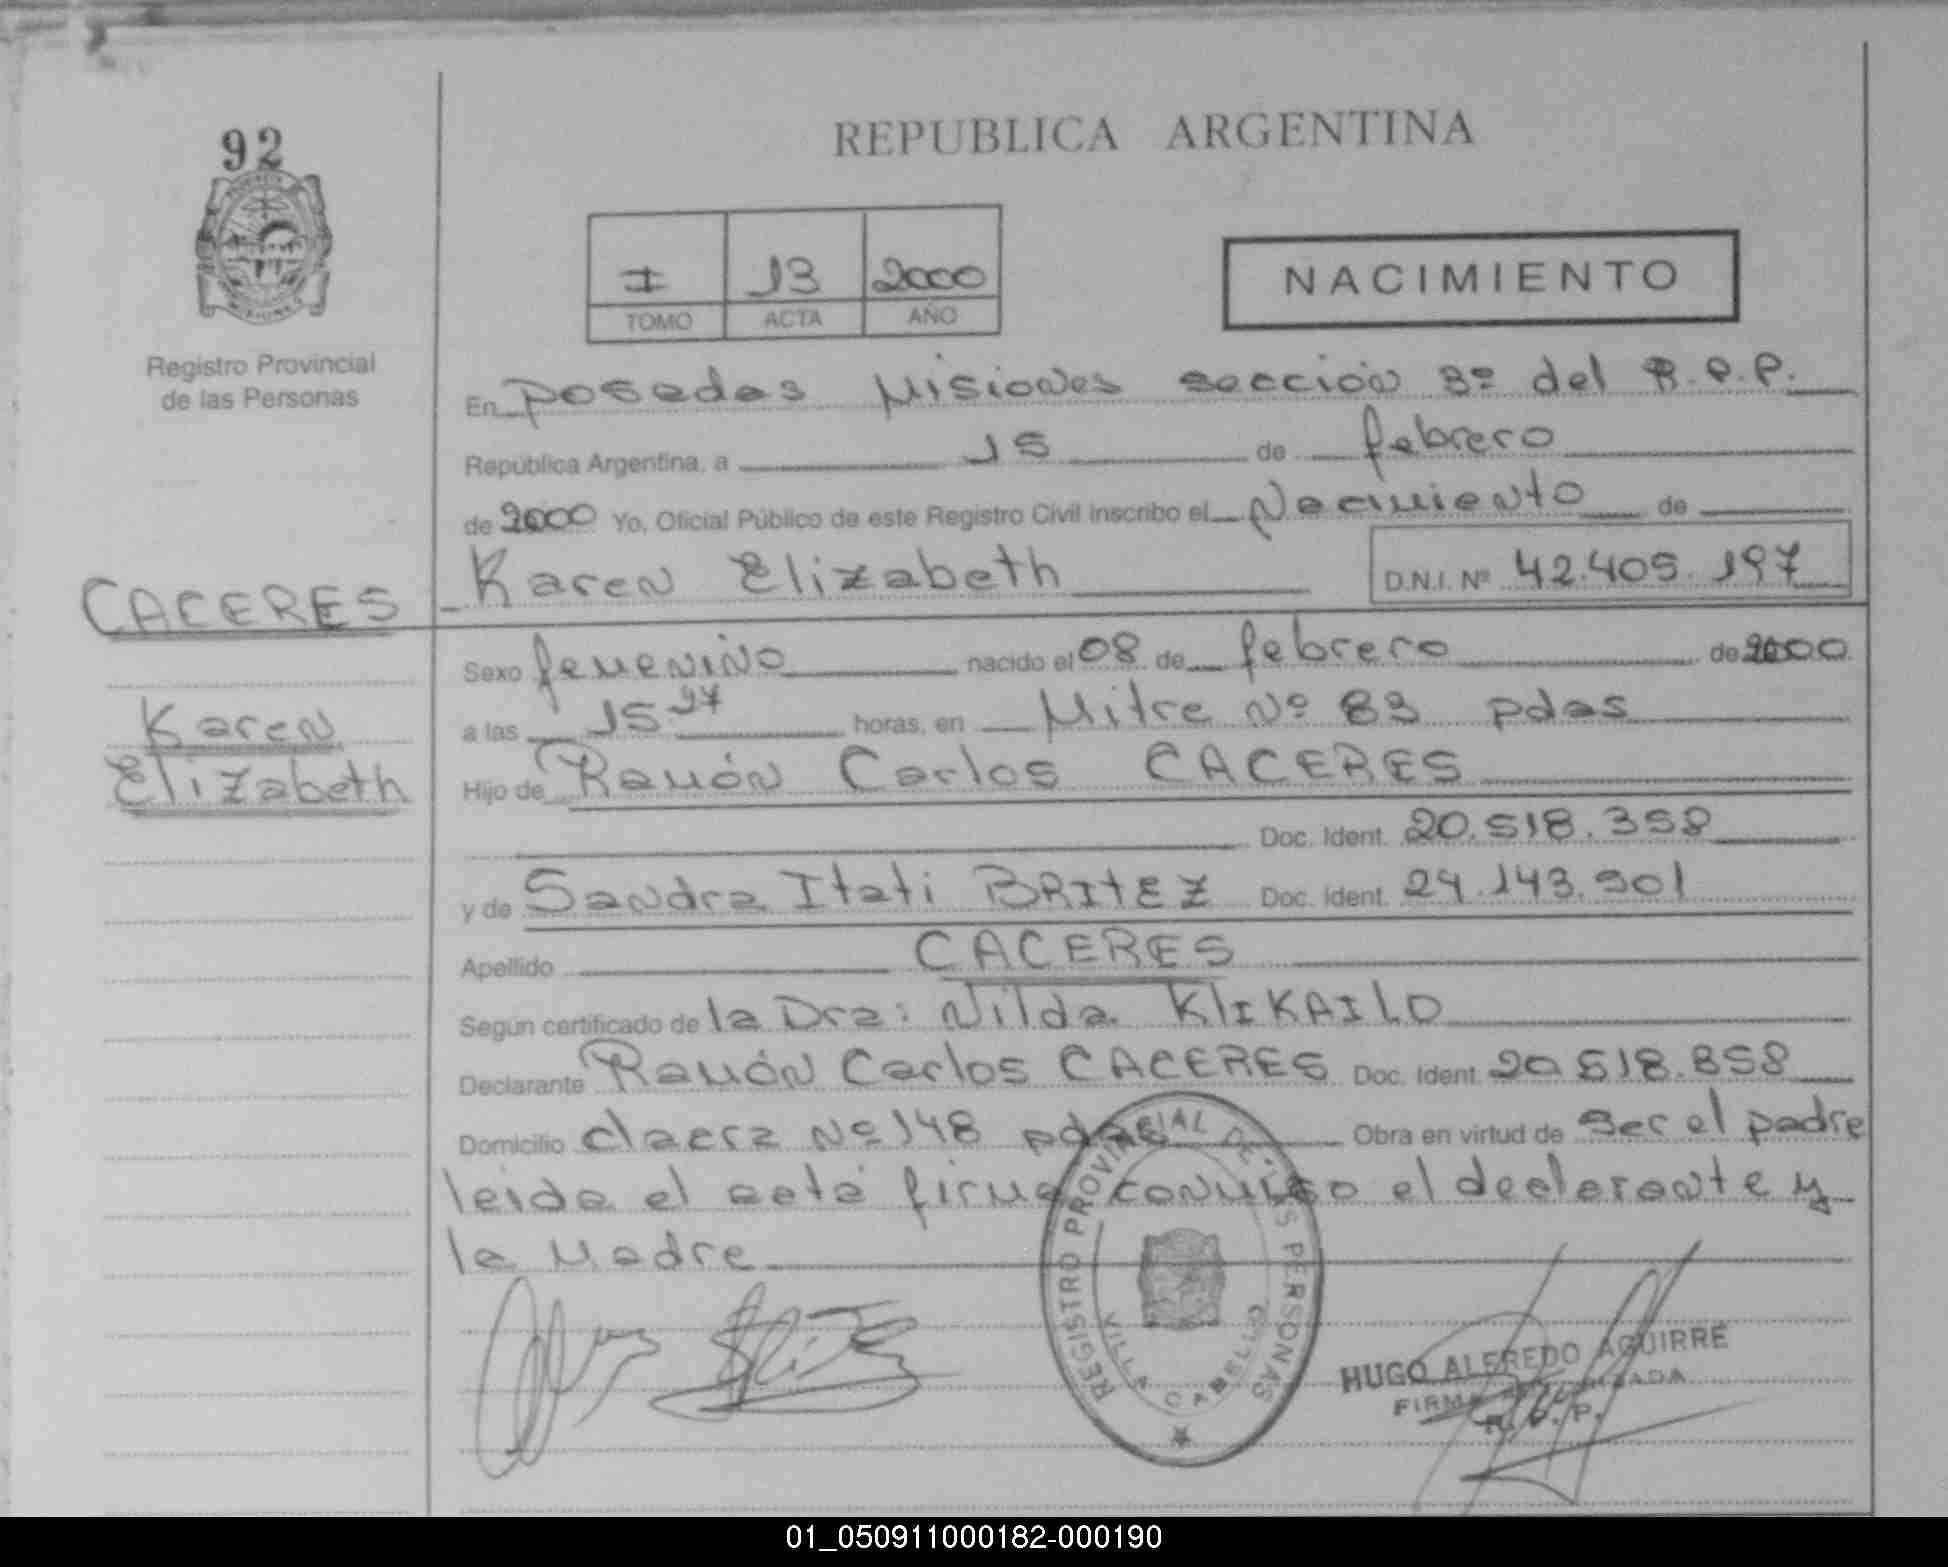 92
REPUBLICA ARGENTINA
I 13 2000
TOMO ACTA AÑO
NACIMIENTO
Registro Provincial
de las Personas
En Posadas Misiones sección 3º del R.P.P.
República Argentina, a 15 de febrero
de 2000 Yo, Oficial Público de este Registro Civil inscribo el Nacimiento de
Karen Elizabeth D.N.I. Nº 42.405.197
CACERES
Karen
Elizabeth
Sexo femenino nacido el 08 de febrero de 2000
a las 15 27 horas, en Mitre Nº 83 pdas
Hijo de Ramón Carlos CACERES
Doc. Ident. 20.518.358
y de Sandra Itati BRITEZ Doc. Ident. 24.143.901
Apellido CACERES
Según certificado de la Dra: Nilda KLIKAILO
Declarante Ramón Carlos CACERES Doc. Ident. 20.518.858
Domicilio claera Nº 148 pdas Obra en virtud de ser el padre
leida el acta firma conmigo el declarante y
la Madre
REGISTRO PROVINCIAL DE LAS PERSONAS
VILLA CABELLO
HUGO ALFREDO AGUIRRE
FIRMA AUTORIZADA
R. P. P.
01_050911000182-000190